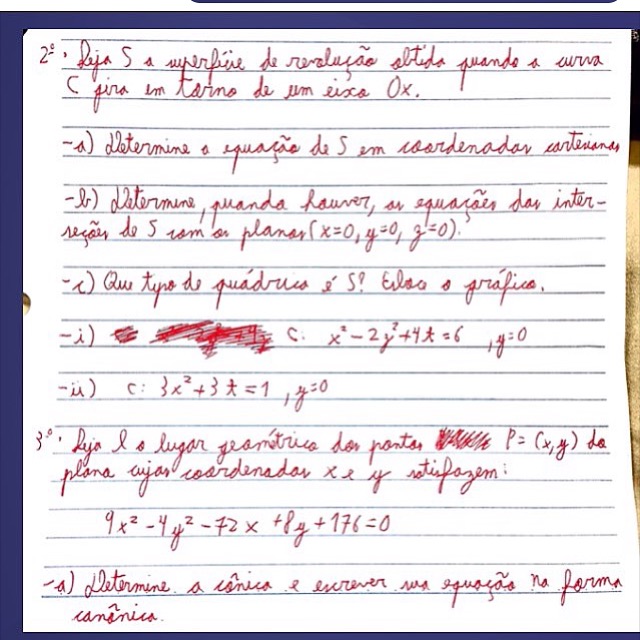 2º. Seja S a superfície de revolução obtida quando a curva
C gira em torno de um eixo Ox.
-a) Determine a equação de S em coordenadas cartesianas
-b) Determine, quando houver, as equações das inter-
seções de S com os planos (x=0, y=0, z=0).
-c) Que tipo de quádrica é S? Esboce o gráfico.
-i) C: x²-2y²+4z=6 , y=0
-ii) C: 3x²+3z=1 , y=0
3º. Seja l o lugar geométrico dos pontos P=(x,y) do
plano cujas coordenadas x e y satisfazem:
9x²-4y²-72x+8y+176=0
-a) Determine a cônica e escrever sua equação na forma
canônica.